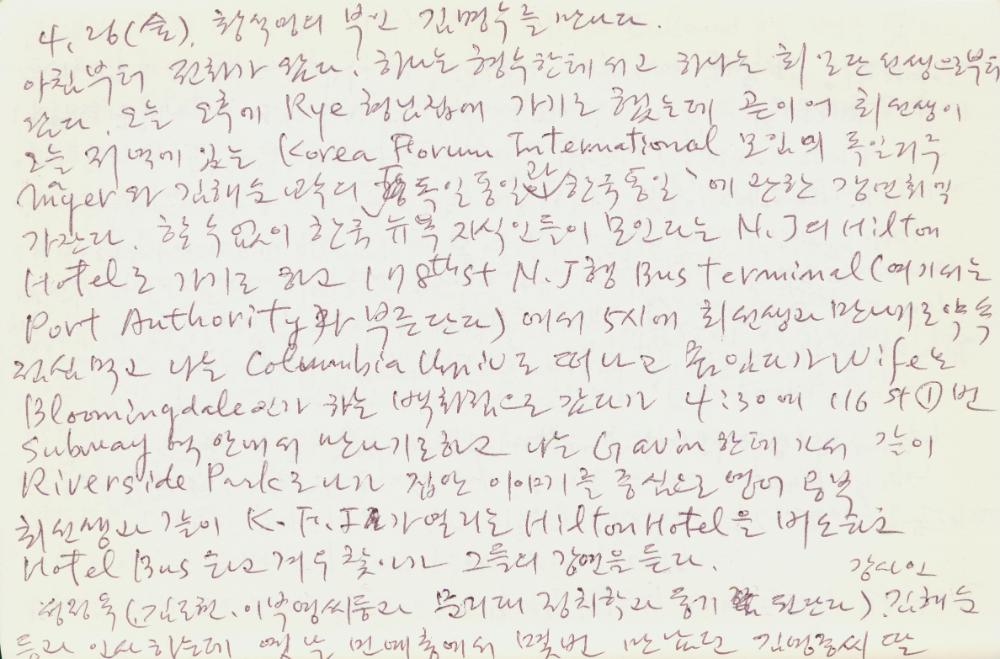 4, 26(金). 황석영의 부인 김명수를 만나다.
아침부터 전화가 왔다. 하나는 형수한테서고 하나는 최 선생으로부터
왔다. 오늘 오후에 Rye 형님집에 가기로 했는데 곧이어 최선생이
오늘 저녁에 있는 Korea Forum International 모임의 독일거주
와 김해순 교수의 독일통일과 한국통일 에 관한 강연회일
가잔다. 할 수 없이 한국 뉴욕 지식인들이 모인다는 N.J의 Hilton
Hotel로 가기로 하고 178th st N.J행 Bus terminal (여기서는
Port Authority라 부른단다) 에서 5시에 최선생과 만나기로 약속
점심먹고 나는 Columbia Univ로 떠나고 wife는
Bloomingdale인가 하는 백화점으로 갔다가 4:30에 116 st ① 번
Subway 역 안에서 만나기로하고 나는 Gavin한테 가서 같이
Riverside Park로 나가 집안 이야기를 중심으로 영어 공부
최선생과 같이 K.F.I가 열리는 Hilton Hotel을 버스타고
Hotel Bus 타고 겨우 찾아가 그들의 강연을 듣다.
강사인
(김도현, 이부영씨등과 문리대 정치학과 동기 된단다) 김해순
등과 인사하는데 옛날 민예총에서 몇번 만났던 김명종씨 딸